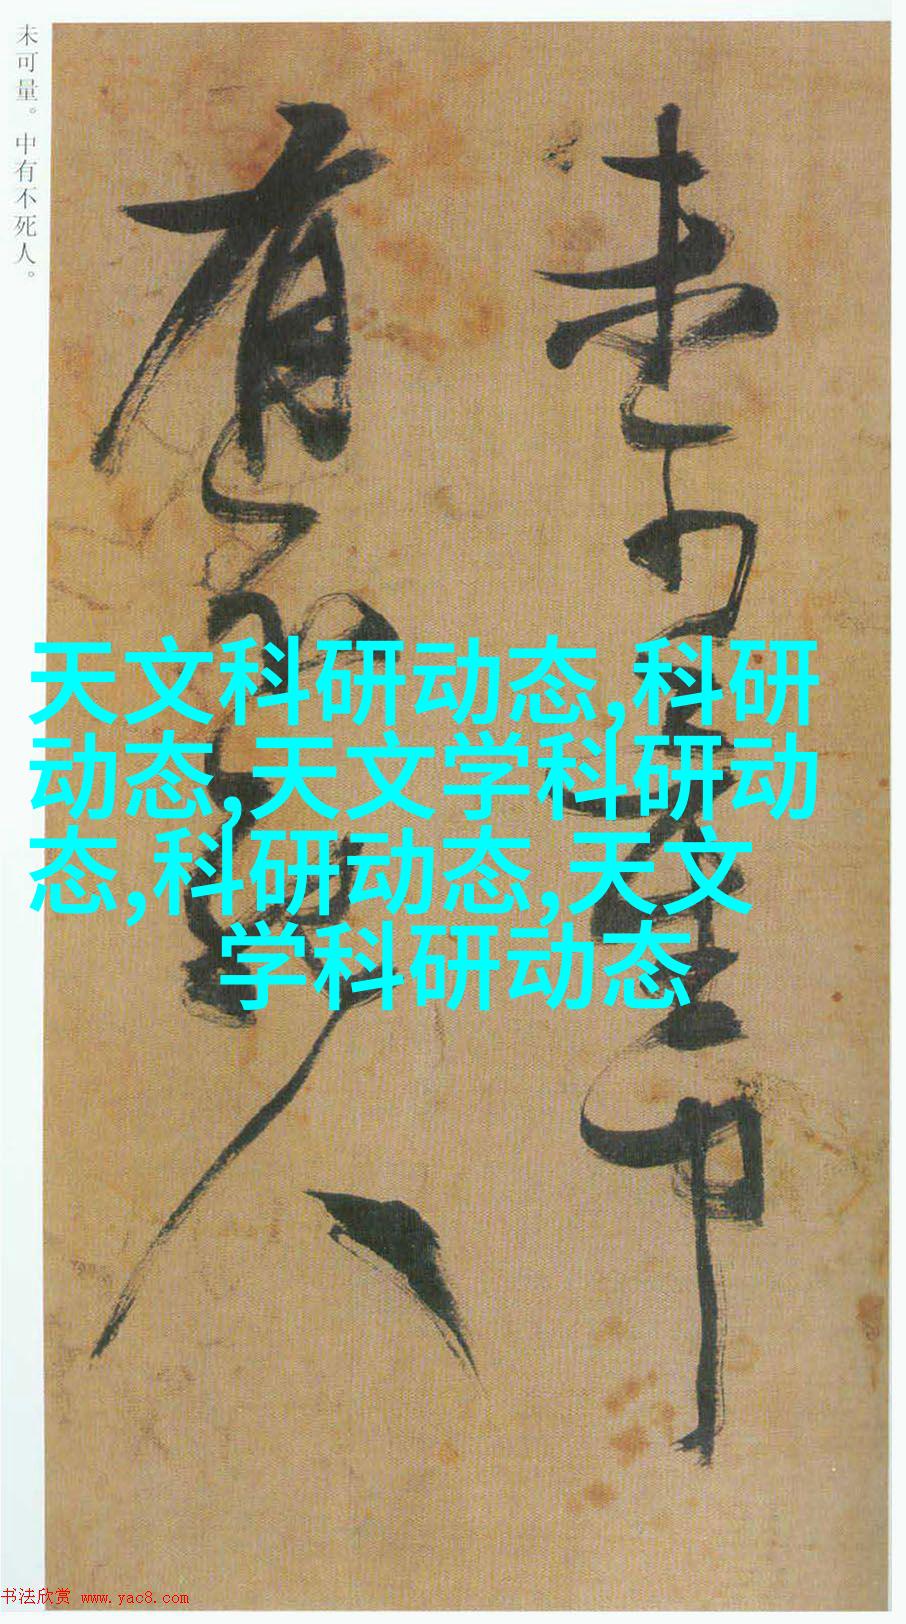 未可量。中有不死人。
未可量中
有不死人
天文科研动态,科研
动态,天文学科研动
态,科研动态,天文
学科研动态
书法欣赏 www.yac8.com